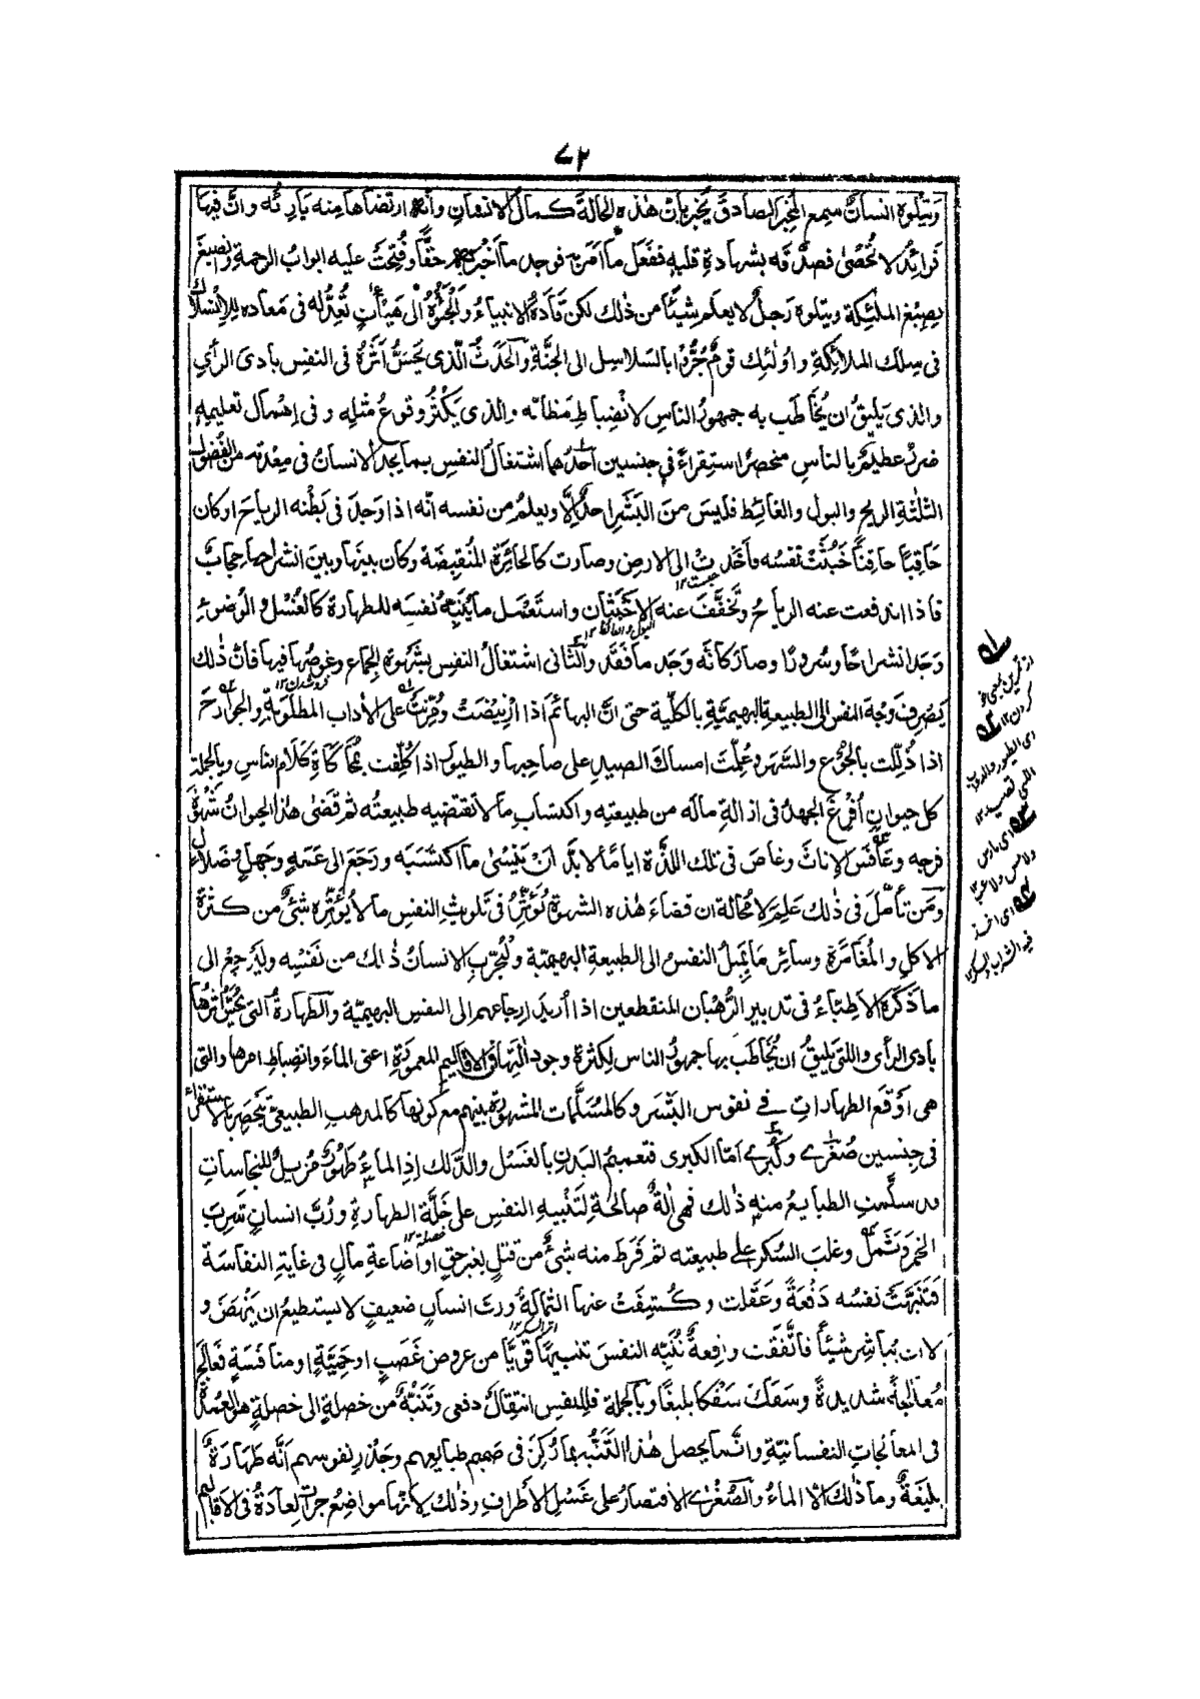 ٧٢
ويتلوه انسان سمع المخبر الصادق يخبر بان هذه الحالة كمال الانسان وانه ارتضاها منه بارئه وان فيها
فوائد لا تحصى فصدقه بشهادة قلبه ففعل ما امر به فوجد ما اخبر به حقا وفتحت عليه ابواب الرحمة وانصبغ
بصبغ الملئكة ويتلوه رجل لا يعلم شيئا من ذلك لكن قاده الانبياء والجئوه الى هيأت تعد له فى معاده للانسلاك
فى سلك الملائكة واولئك قوم جروا بالسلاسل الى الجنة والحدث الذى يحس اثره فى النفس بادى الرأي
والذى يليق ان يخاطب به جمهور الناس لانضباط مظانه والذى يكثر وقوع مثله وفى اهمال تعليمه
ضرر عظيم بالناس منحصر استقراء فى جنسين احدهما اشتغال النفس بما يجد الانسان فى معدته من الفضول
الثلثة الريح والبول والغائط فليس من البشر احد الا ويعلم من نفسه انه اذا وجد فى بطنه الرياح او كان
حاقبا حاقنا خبثت نفسه واخلدت الى الارض وصارت كالحائرة المنقبضة وكان بينها وبين انشراحها حجاب
فاذا اندفعت عنه الرياح وتخفف عنه الاخبثان واستعمل ما ينبه نفسه للطهارة كالغسل والوضوء
البول والغائط ١٢
وجد انشراحا وسرورا وصار كانه وجد ما فقد والثانى اشتغال النفس بشهوة الجماع وغوصها فيها فان ذلك
يصرف وجه النفس الى الطبيعة البهيمية بالكلية حتى ان البهائم اذا ارتيضت ومرنت على الأداب المطلوبة والجوارح
اذا ذللت بالجوع والسهر وعلمت امساك الصيد على صاحبها والطيور اذا كلفت بمحاكاة كلام الناس وبالجملة
كل حيوان افرغ الجهد فى ازالة ماله من طبيعته واكتساب ما لا تقتضيه طبيعته ثم قضى هذا الحيوان شهوة
فرجه وعافس الاناث وغاص فى تلك اللذة اياما لا بد ان ينسى ما اكتسبه ورجع الى عمه وجهل وضلال
ومن تأمل فى ذلك علم لا محالة ان قضاء هذه الشهوة يؤثر فى تلويث النفس ما لا يؤثره شئ من كثرة
الاكل والمغامرة وسائر ما يميل النفس الى الطبيعة البهيمية وليجرب الانسان ذلك من نفسه وليرجع الى
ما ذكره الاطباء فى تدبير الرهبان المنقطعين اذا اريد ارجاعهم الى النفس البهيمية والطهارة التى يحس اثرها
بادى الرأى واللتى يليق ان يخاطب بها جمهور الناس لكثرة وجود التها فى الاقاليم المعمورة اعنى الماء وانضباط امرها والتى
هى اوقع الطهارات فى نفوس البشر وكالمسلمات المشهورة بينهم مع كونها كالمذهب الطبيعى تنحصر بالاستقراء
فى جنسين صغرى وكبرى اما الكبرى فتعميم البدن بالغسل والدلك اذ الماء طهور مزيل للنجاسات
قد سلمت الطبايع منه ذلك فهى الة صالحة لتنبيه النفس على خلة الطهارة ورب انسان شرب
خصلة ١٢
الخمر وثمل وغلب السكر على طبيعته ثم فرط منه شئ من قتل بغير حق او اضاعة مال فى غاية النفاسة
فتنبهت نفسه دفعة وعقلت وكشفت عنها الثمالة ورب انسان ضعيف لا يستطيع ان ينهض و
لا ان يباشر شيئا فاتفقت واقعة تنبه النفس تنبيها قويا من عروض غضب او حمية او منافسة فعالج
معالجة شديدة وسفك سفكا بليغا وبالجملة فللنفس انتقال دفعى وتنبه من خصلة الى خصلة هو العمدة
فى المعالجات النفسانية وانما يحصل هذا التنبه بما ركز فى صميم طبايعهم وجذر نفوسهم انه طهارة
بليغة وما ذلك الا الماء والصغرى الاقتصار على غسل الأطراف وذلك لانها مواضع جرت العادة فى الاقاليم
اى الطيور والدواب